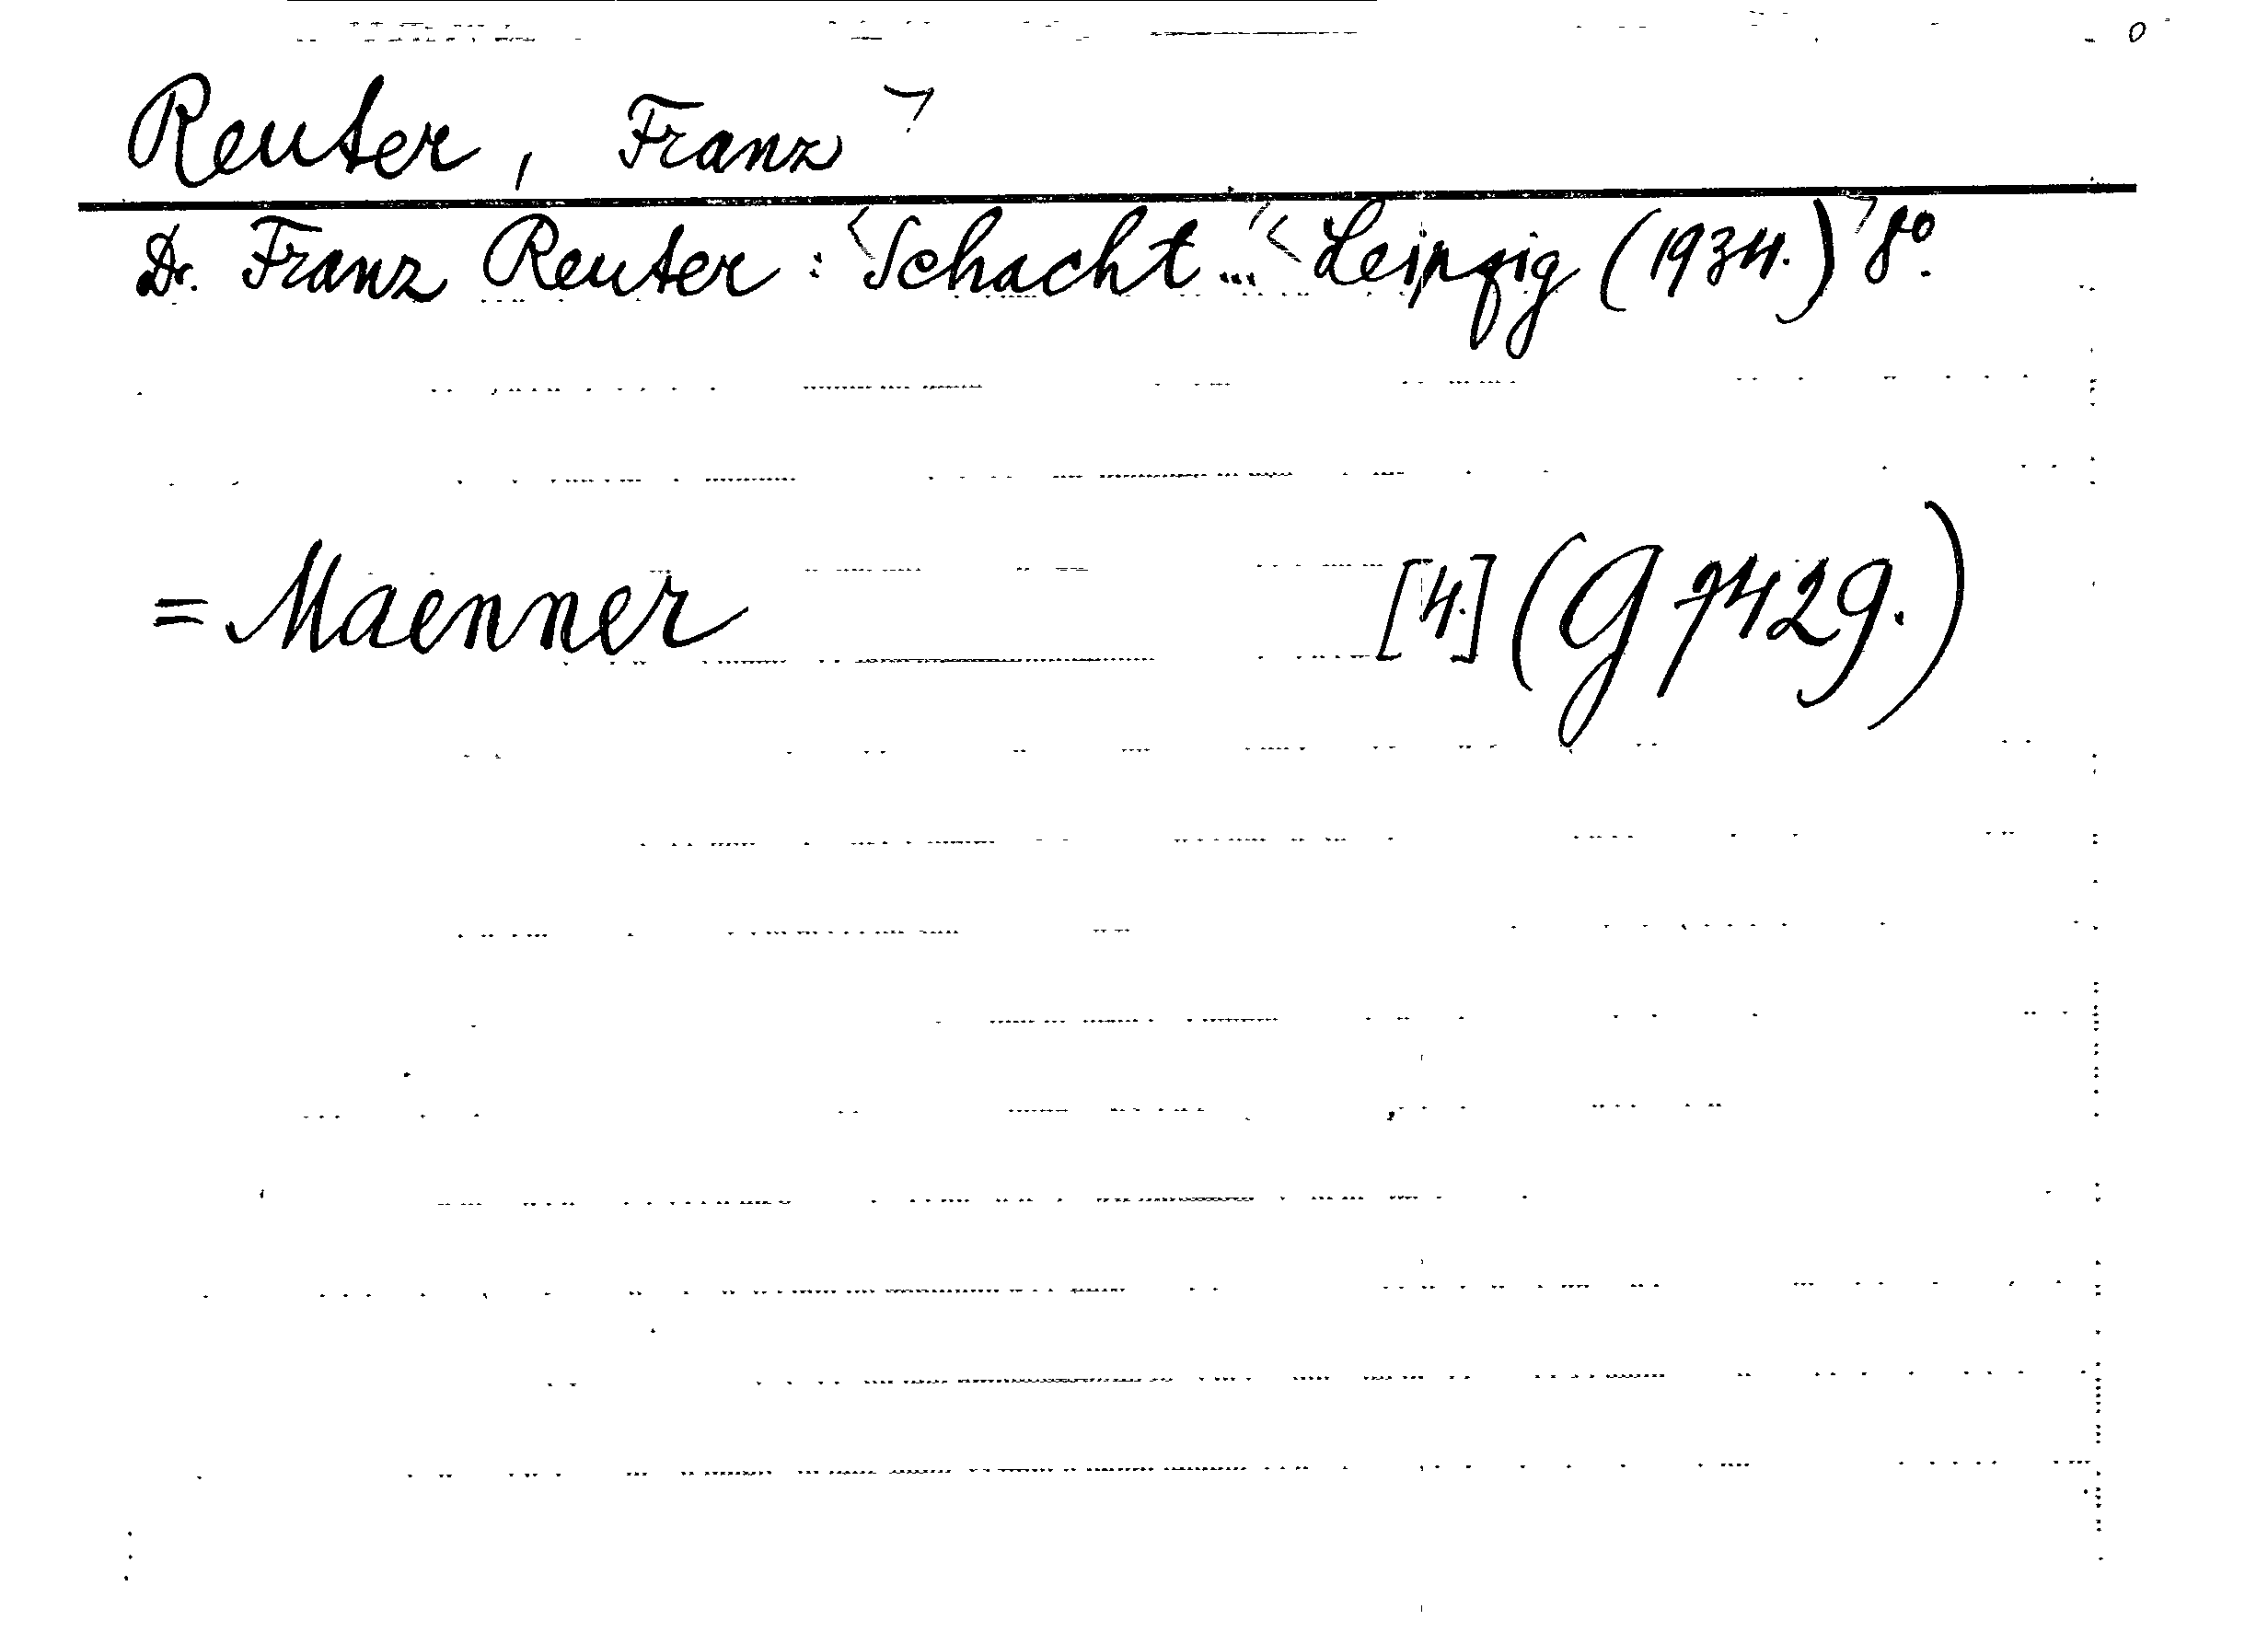 Reuter, Franz
Dr. Franz Reuter: Schacht... Leipzig (1934.) 8º.
= Maenner [4.] (G 7429.)